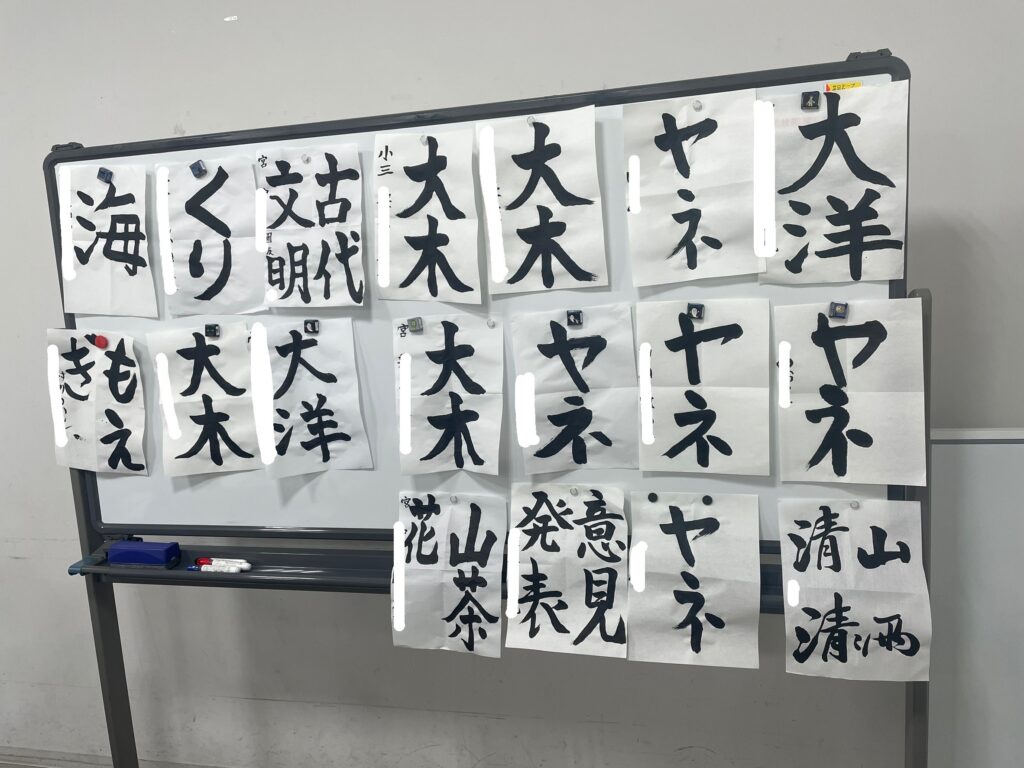 海
くり
古代
文明
宮
大木
小三
大木
ヤネ
大洋
もえ
ぎ
大木
大洋
大木
宮
ヤネ
ヤネ
ヤネ
山茶
花
宮
意見
発表
ヤネ
山
清清